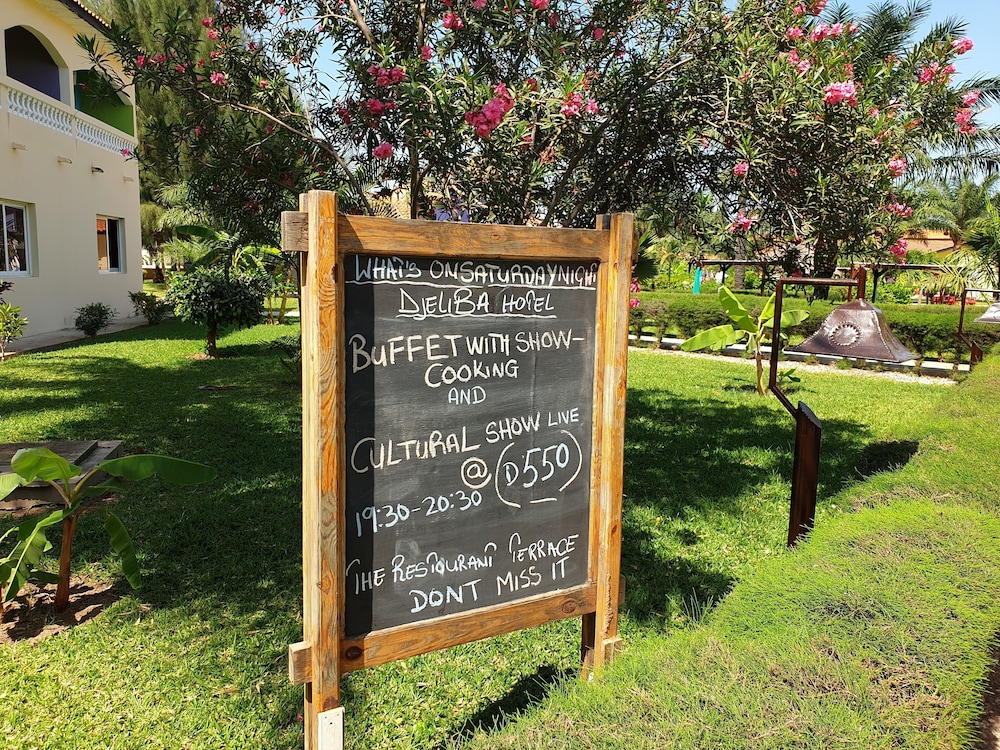 WHAT'S ON SATURDAY NIGHT
DJELIBA HOTEL
BUFFET WITH SHOW-
COOKING
AND
CULTURAL SHOW LIVE
@ D550
19:30-20:30
THE RESTOURANT TERRACE
DONT MISS IT